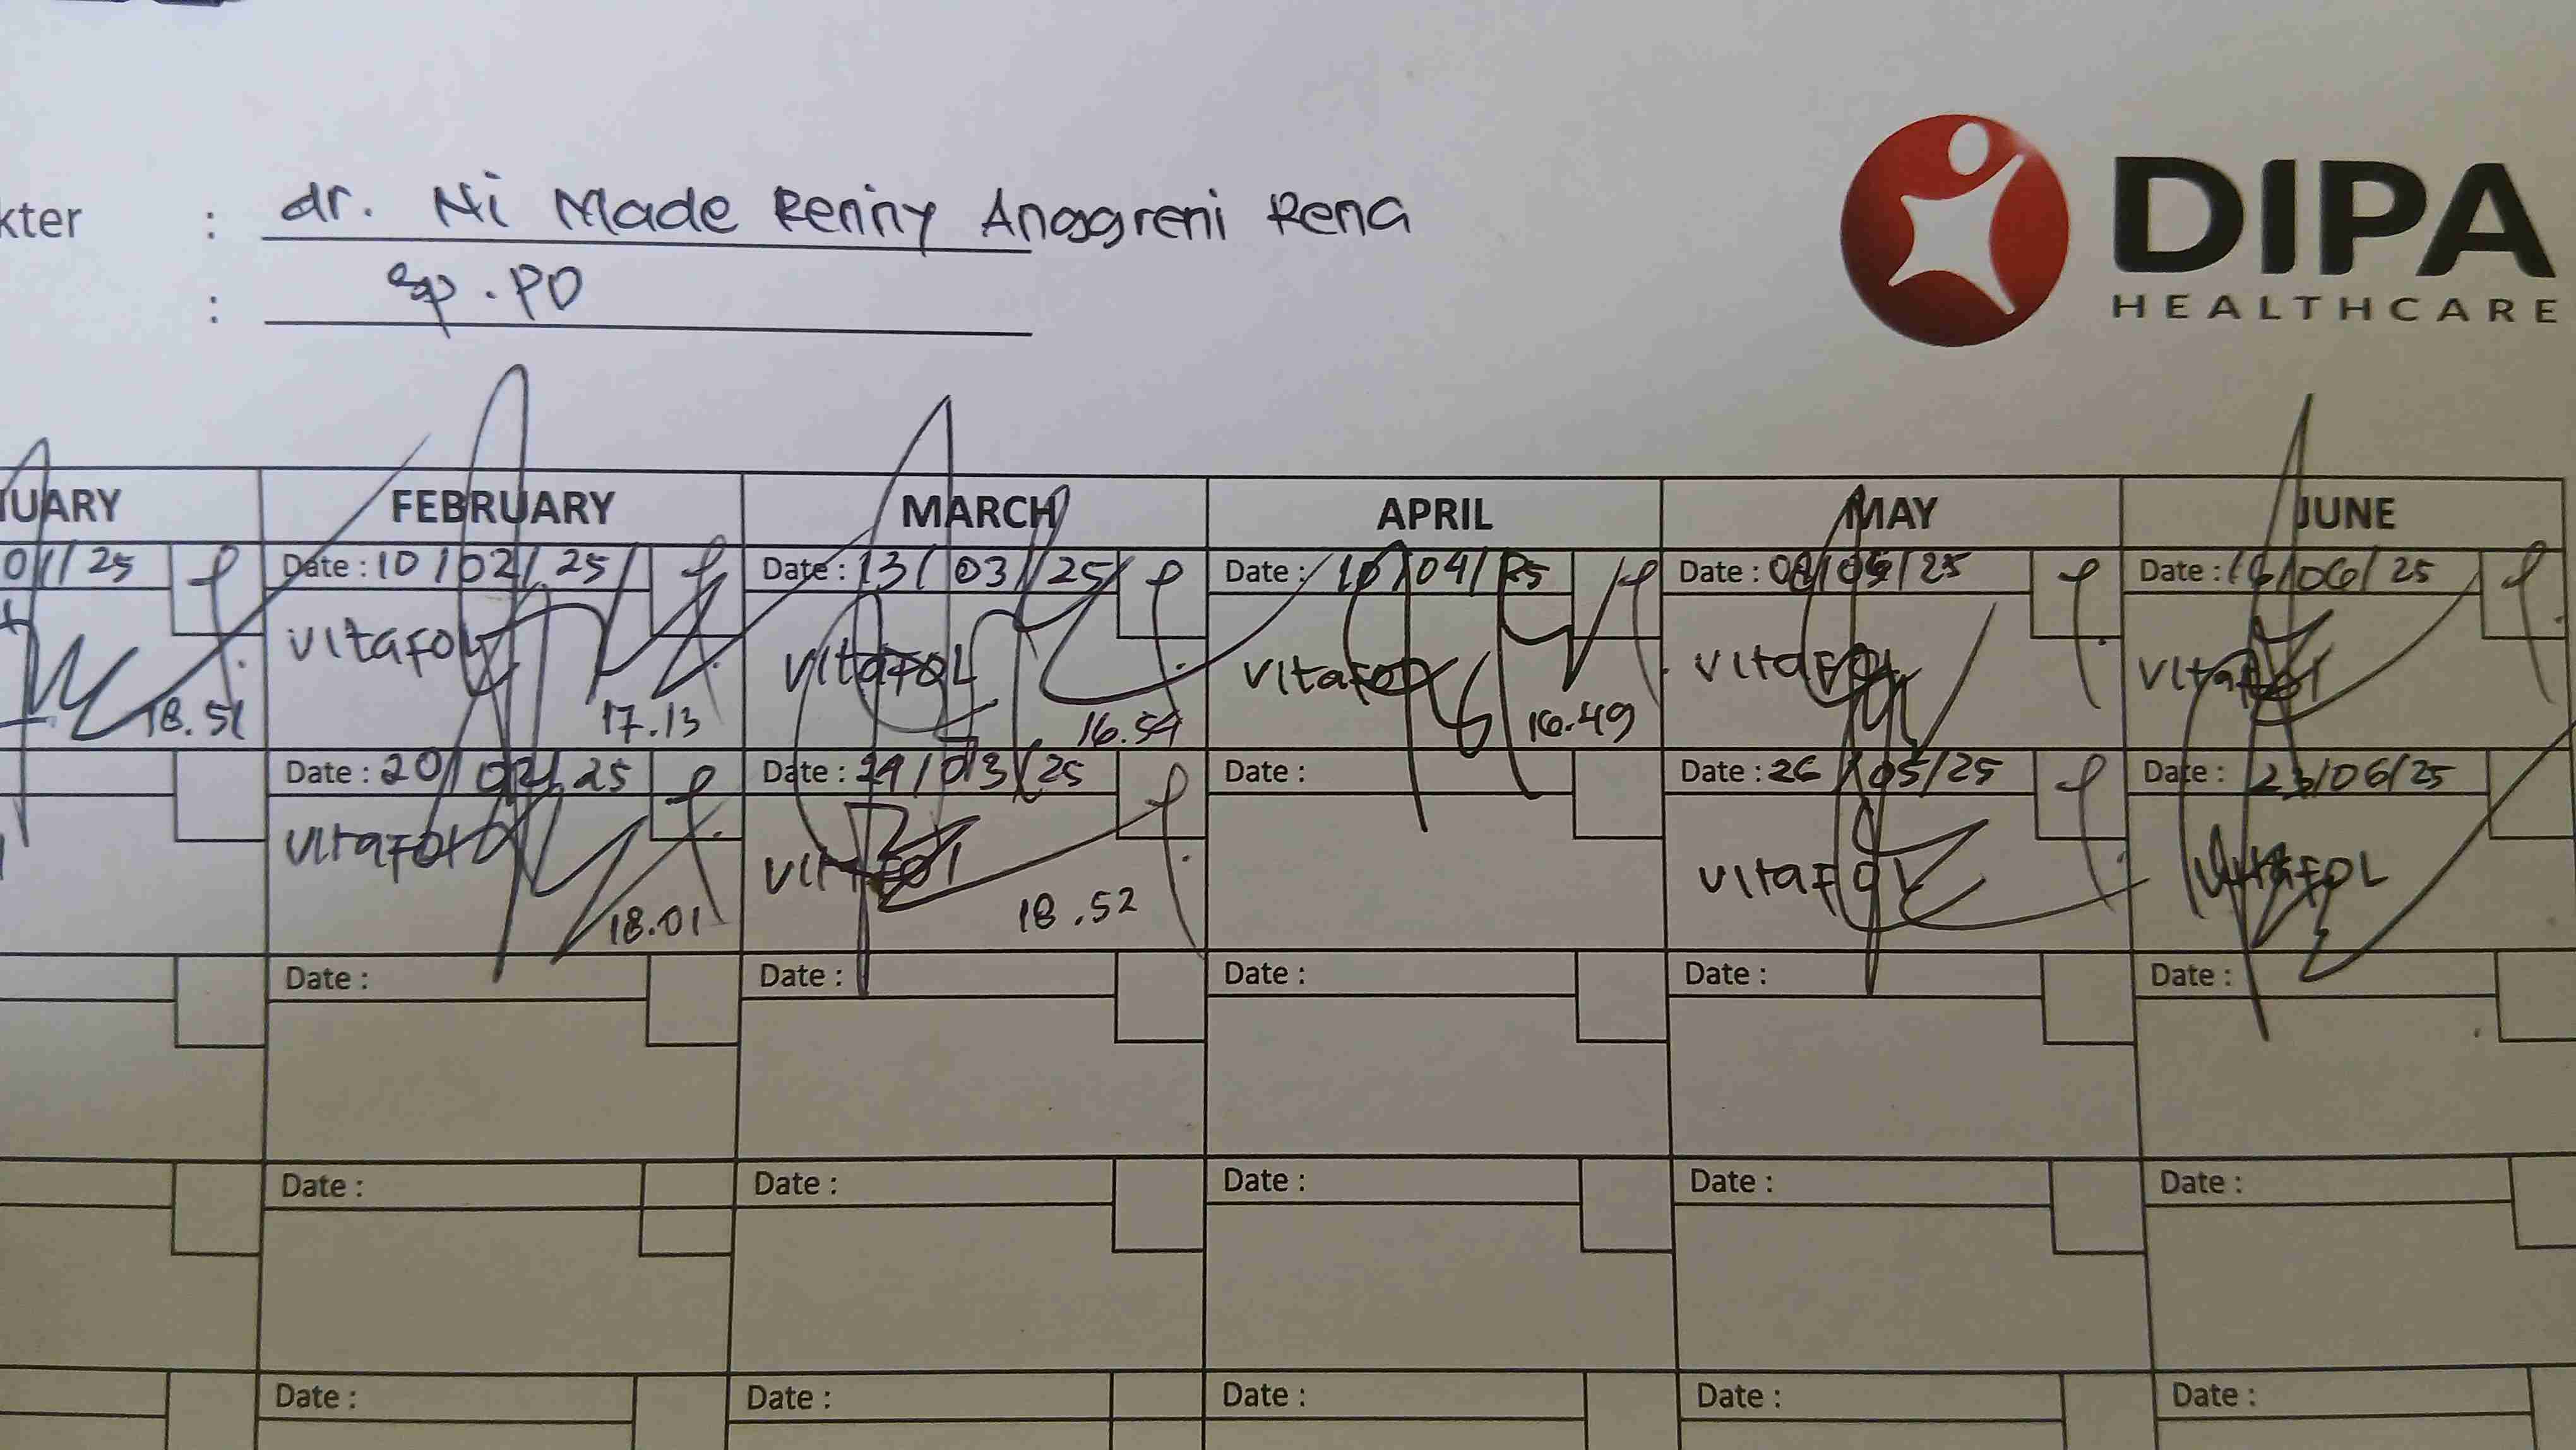 kter : dr. Ni Made Renny Anggreni Rena
: Sp.PD
DIPA
HEALTHCARE
UARY FEBRUARY MARCH APRIL MAY JUNE
01/25 Date : 10/02/25 Date : 13/03/25 Date : 10/04/25 Date : 08/05/25 Date : 16/06/25
VitaFOL VitaFOL VitaFOL VitaFOL VitaFOL
18.51 17.13 16.54 16.49
Date : 20/02/25 Date : /03/25 Date : Date : 26/05/25 Date : 23/06/25
VitaFOL VitaFOL VitaFOL VitaFOL
18.01 18.52
Date : Date : Date : Date : Date :
Date : Date : Date : Date : Date :
Date : Date : Date : Date : Date :